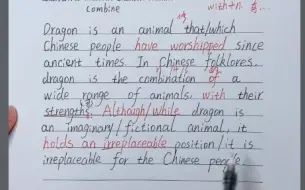 combine
with+n.
Dragon is an animal that/which
Chinese people have worshipped since
ancient times. In Chinese folklores,
dragon is the combination of a
wide range of animals, with their
strengths. Although/while dragon is
an imaginary/fictional animal, it
holds an irreplaceable position/it is
irreplaceable for the Chinese people